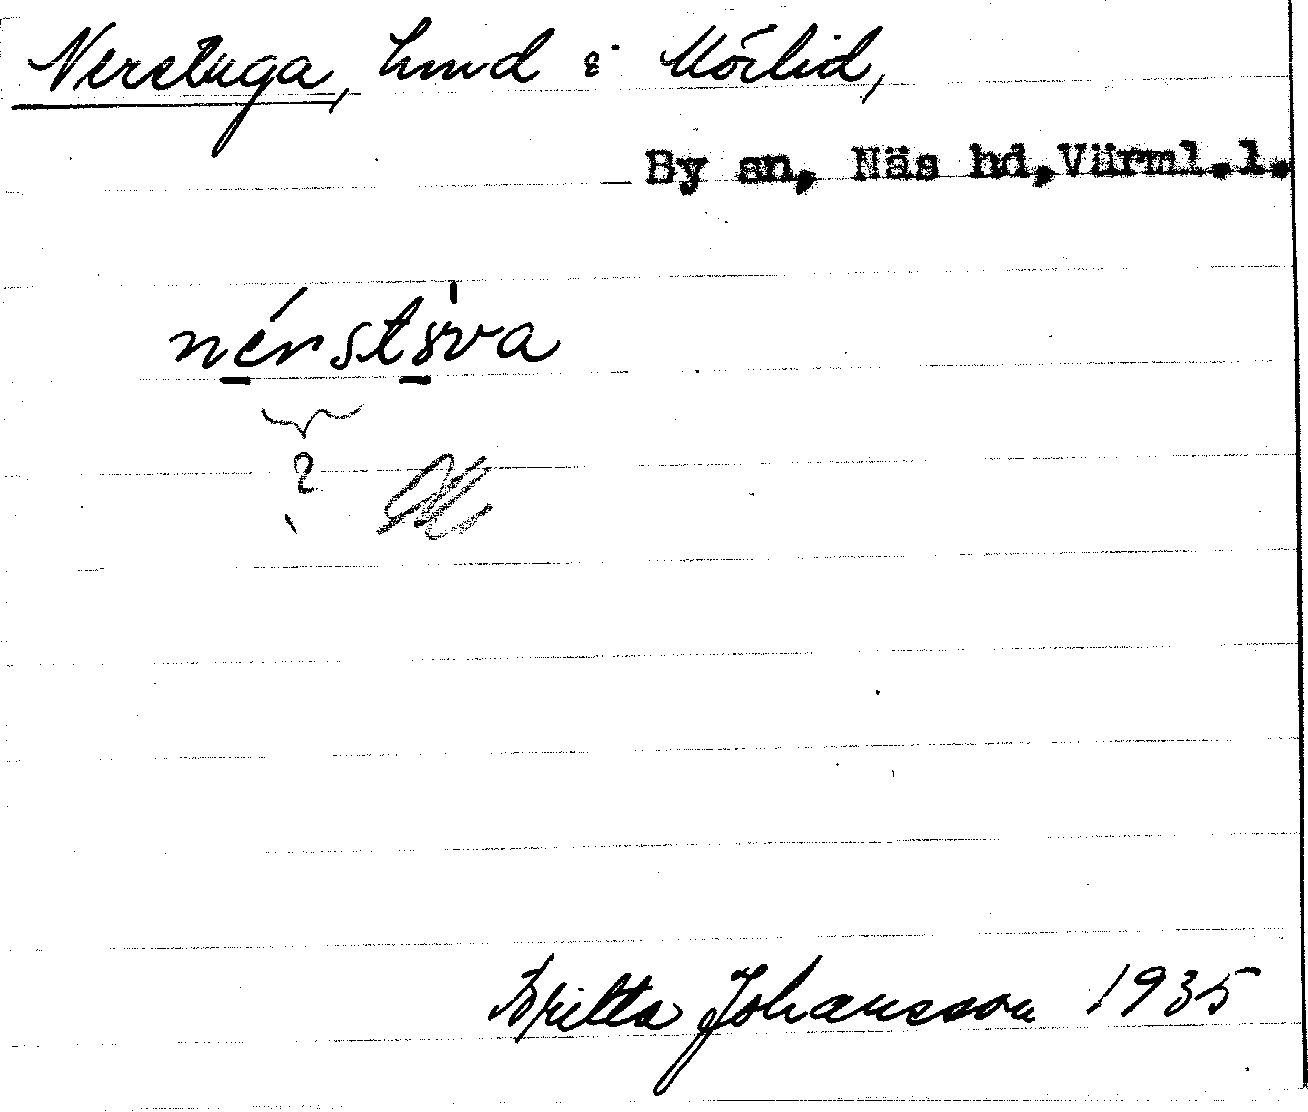 Nerstuga, hmd i Mörlid,
By sn, Näs hd,Värml.l.
nérstùva
?
Britta Johansson 1935